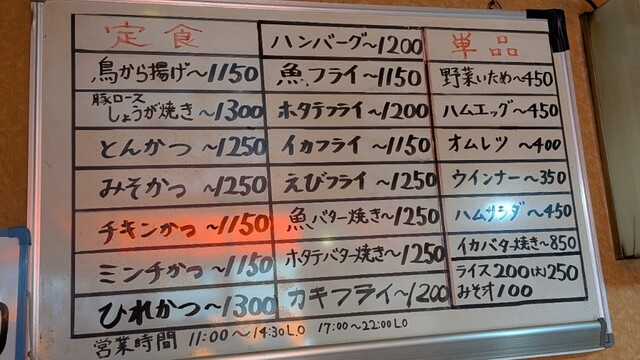 定食
鳥から揚げ~1150
豚ロース
しょうが焼き~1300
とんかつ~1250
みそかつ~1250
チキンかつ~1150
ミンチかつ~1150
ひれかつ~1300
ハンバーグ~1200
魚フライ~1150
ホタテフライ~1200
イカフライ~1150
えびフライ~1250
魚バター焼き~1250
ホタテバター焼き~1250
カキフライ~1200
単品
野菜いため~450
ハムエッグ~450
オムレツ~400
ウインナー~350
ハムサラダ~450
イカバター焼き~850
ライス200(大)250
みそ汁100
営業時間 11:00~14:30LO 17:00~22:00LO